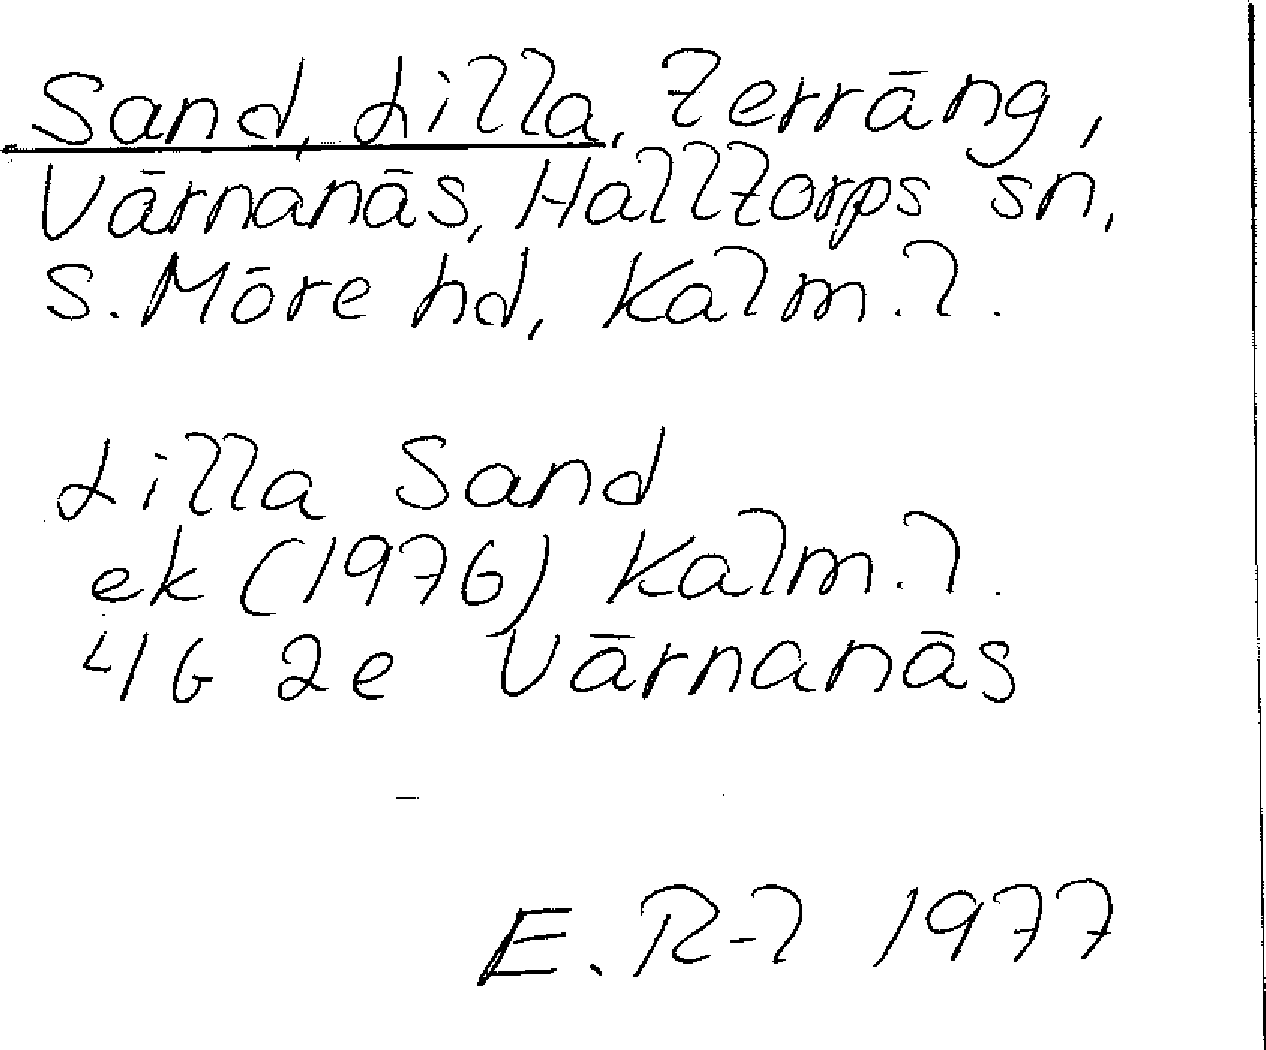 Sand, Lilla, terräng,
Värnanäs, Halltorps sn,
S. Möre hd, Kalm. l.
Lilla Sand
ek (1976) Kalm. l.
4G 2e Värnanäs
E. R-l 1977